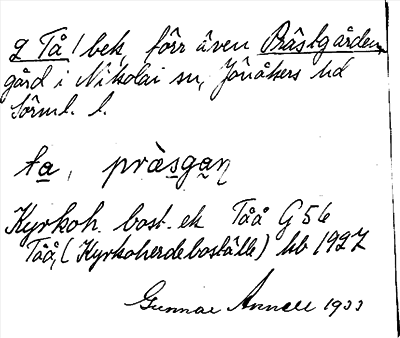 2 Tå / bek, förr även Prästgården,
gård i Nikolai sn, Jönåkers hd
Sörml. l.
ta, pràsgan
Kyrkoh. bost. ek Tåå G 56
Tåå, (Kyrkoherdeboställe) hb 1927
Gunnar Annell 1933